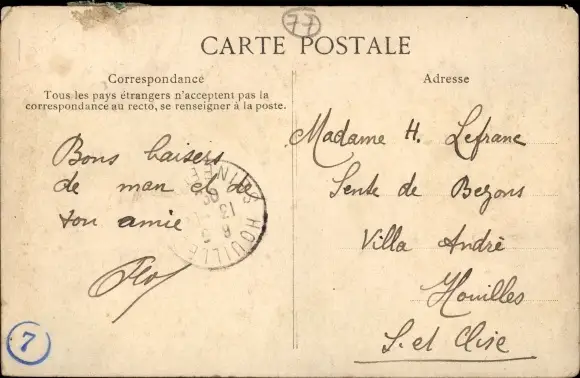 77
CARTE POSTALE
Correspondance
Tous les pays étrangers n'acceptent pas la
correspondance au recto, se renseigner à la poste.
Adresse
Bons baisers
de man et de
ton amie
Madame H. Lefranc
Sente de Bezons
Villa André
Houilles
S. et Oise
HOUILLE
7